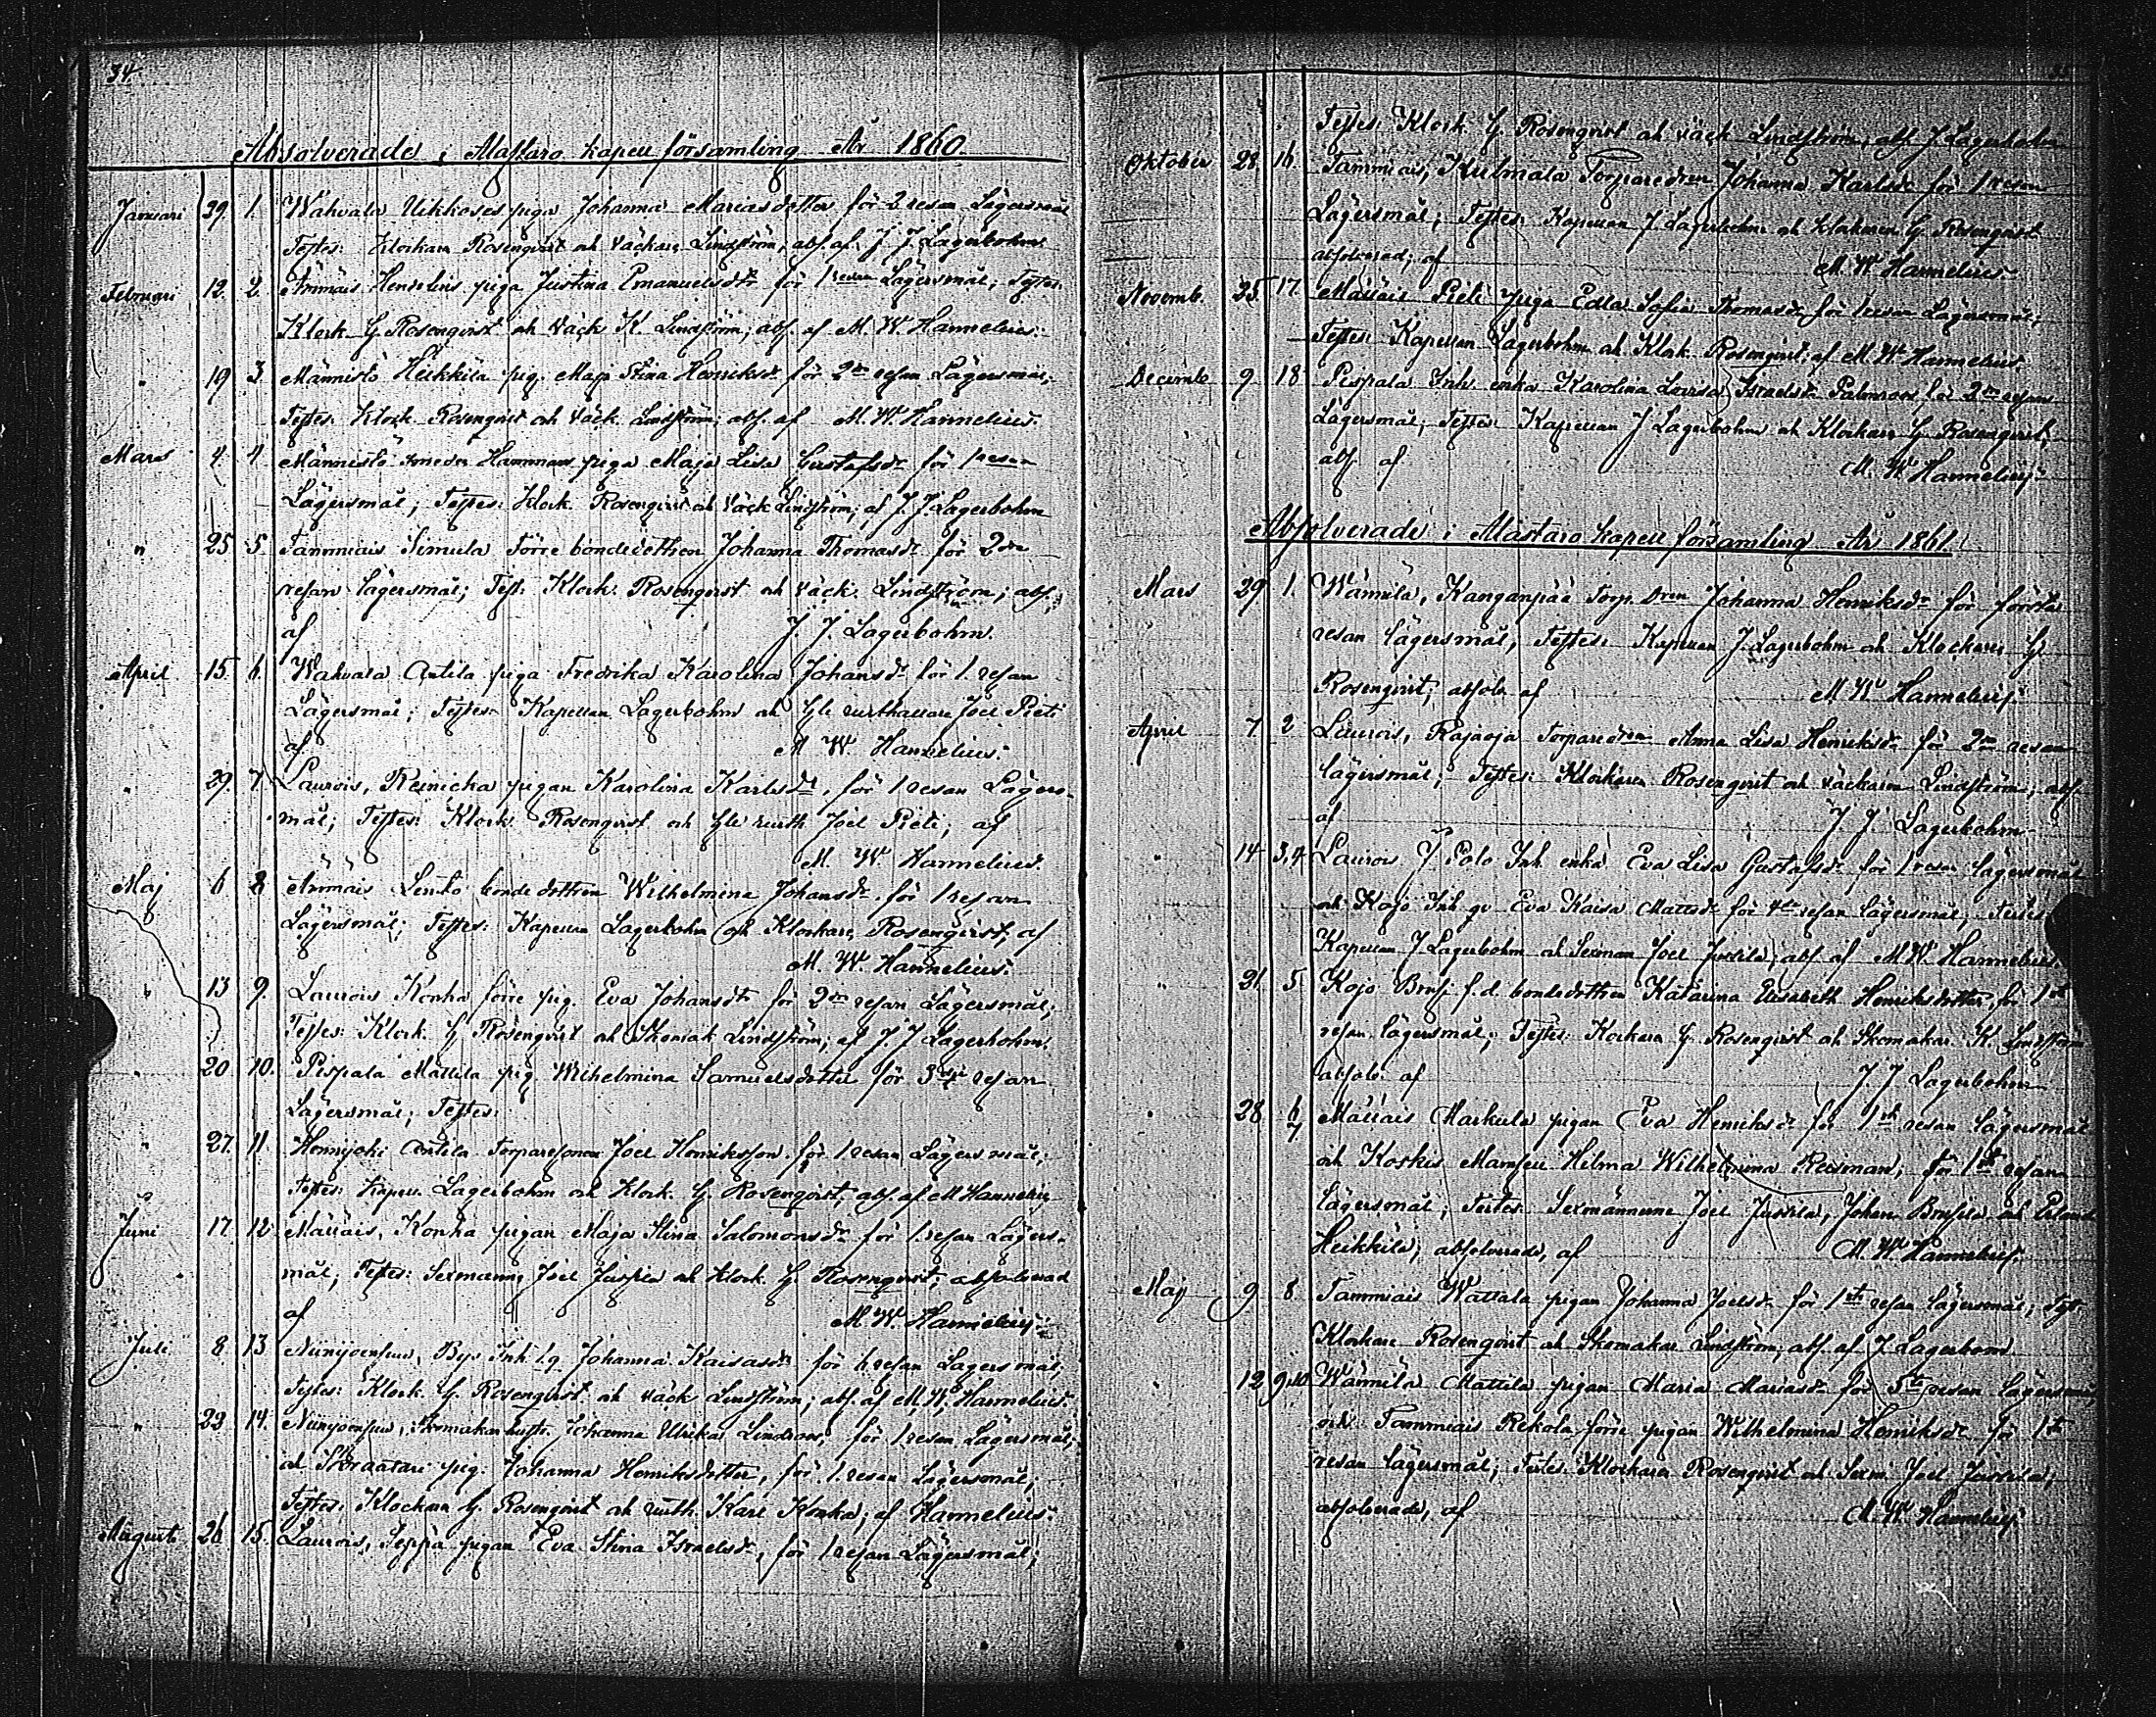 34
Absolverade i Alastaro kapell församling År 1860
Januari 29 1. Wahvala Uckkoses piga Johanna Mariasdotter för 2 resan Lägersmål
Testes: Klockare Rosenqvist och väckare Lindström, abs. af J. J. Lagerbohm
Februari 12. 2. Ammäis Henselius piga Justina Emanuelsdr för 1 resan Lägersmål; Testes:
Klock G. Rosenqvist och Väck K. Lindström; abs. af M. W. Hannelius.
" 19 3. Männistö Heikkilä pig. Maja Stina Henriksdr för 2dra resan Lägersmål;
Testes: Klock Rosenqvist och Väck. Lindström; abs. af M. W. Hannelius.
Mars 4. 4. Männistö smeden Hammars piga Maja Lisa Gustafsdr för 1 resan
Lägersmål; Testes: Klock. Rosenqvist och Väck Lindström; af J. J. Lagerbohm
" 25 5. Tammiais Simula Förre bondedottren Johanna Thomasdr för 2dra
resan lägersmål; Test: Klock. Rosenqvist och Väck. Lindström; abs.
af J. J. Lagerbohm.
April 15. 6. Wahvala Antila piga Fredrika Karolina Johansdr för 1. resan
Lägersmål; Testes: Kapellan Lagerbohm och Joel Pieti
af M W. Hannelius.
" 29. 7. Laurois, Reinicka pigan Karolina Karlsdr, för 1 resan Lägers-
mål; Testes: Klock Rosenqvist och Joel Pieti; af
M. W. Hannelius.
Maj 6 8 Ammäis Lentö bonde dottren Wilhelmina Johansdr. för 1 resan
Lägersmål; Testes: Kapellan Lagerbohm och Klockare Rosenqvist; af
M. W. Hannelius.
" 13 9. Laurois Konha förre pig. Eva Johansdr för 2dra resan Lägersmål;
Testes: Klock. G. Rosenqvist och Skomak Lindström; af J. J Lagerbohm.
" 20 10. Pispala Mattila pig. Wilhelmina Samuelsdotter för 3dje resan
Lägersmål; Testes:
" 27. 11. Hennijoki Antila Torparesonen Joel Henriksson för 1 resan Lägersmål;
Testes: Kapell. Lagerbohm och Klock. G. Rosenqvist; abs. af M Hannelius
Juni 17. 12 Mällais, Konha pigan Maja Stina Salomonsdr för 1. resan Lägers-
mål; Testes: Sexmann Joel Jussila och Klock. G. Rosenqvist; absolverad
af M W. Hannelius.
Juli 8. 13 Niinijoensuu, Bys Inh. Johanna Kaisasdr för 1. resan Lägersmål;
Testes: Klock. G. Rosenqvist och Väck Lindström; abs. af M. W. Hannelius.
" 29 14. Niinijoensuu, Skomakar Johanna Ulrika Lindroos, för 1 resan Lägersmål;
och pig. Johanna Henriksdotter, för 1. resan Lägersmål;
Testes: Klockare G. Rosenqvist och Karl Konha; af Hannelius.
Augusti 26 15. Laurois, Seppä pigan Eva Stina Israelsdr, för 1 resan Lägersmål;
Testes: Klock. G. Rosenqvist och väck Lindström, abs. J. Lagerbohm
Oktober 28 16. Tammiais, Kulmala Torparedren Johanna Karlsdr för 1 resan
Lägersmål; Testes: Kapellan J Lagerbohm och Klockaren G. Rosenqvist
absolverad; af M W Hannelius.
Novemb. 25. 17. Mällais Pieti piga Edla Sofia Thomasdr för 1 resan Lägersmål;
Testes: Kapellan Lagerbohm och Klock. Rosenqvist; af M. W Hannelius.
Decemb 9 18 Pispala Inh. enka Karolina Lovisa Israelsdr Palmroos för 2dra resan
Lägersmål; Testes: Kapellan J Lagerbohm och Klockare G. Rosenqvist;
abs. af M. W Hannelius.
Absolverade i Alastaro kapell församling År 1861.
Mars 29 1. Wännilä, Kanganpää Torp. dren Johanna Henriksdr för första
resan lägersmål, Testes: Kapellan J. Lagerbohm och Klockaren G.
Rosenqvist; absolv. af M W Hannelius.
April 7 2 Laurois, Rajaoja Torparedren Anna Lisa Henriksdr för 2dra resan
lägersmål; Testes: Klockaren Rosenqvist och väckaren Lindström, abs.
af J. J. Lagerbohm
" 14 3,4 Laurois J Polo Inh enka Eva Lisa Gustafsdr för 1 resan lägersmål
och Kojo Inh qv Eva Kaisa Mattsdr för 4de resan lägersmål; Testes
Kapellan J Lagerbohm och Sexman Joel Jussila; abs. af M W. Hannelius.
" 21. 5 Kojo f. d. bondedottren Katarina Elisabeth Henriksdotter för 1sta
resan lägersmål; Testes: Klockare G. Rosenqvist och Skomakar K. Lindström
absolv. af J. J Lagerbohm
" 28 6 7 Mällais Markula pigan Eva Henriksdr för 1sta resan lägersmål
och Koskis Mamsell Hilma Wilhelmina Reisman, för 1sta resan
lägersmål; Testes: Sexmännerne Joel Jussila, Johan och
Heikkilä; absolverade, af M. W Hannelius.
Maj 9 8 Tammiais Wattala pigan Johanna Joelsdr för 1sta resan lägersmål; Test:
Klockare Rosenqvist och Skomakar Lindström; abs. af J. Lagerbohm.
" 12 9,10 Wännilä Mattila pigan Maria Mariasdr för 5te resan lägersmål,
och Tammiais Rekola förre pigan Wilhelmina Henriksdr för 1sta
resan lägersmål; Testes: Klockaren Rosenqvist och Sexm. Joel Jussila,
absolverade, af M. W Hannelius.